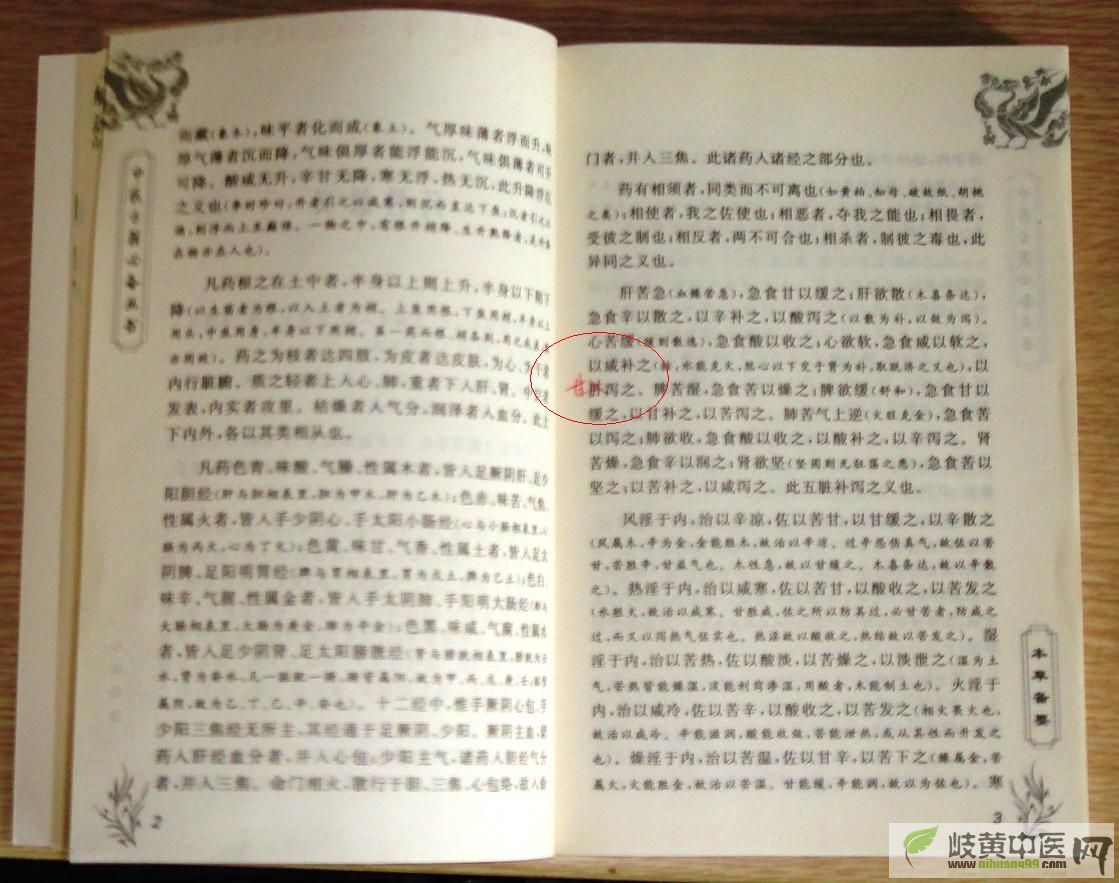 而藏(象水),味平者化而成(象土)。气厚味薄者浮而升,味
厚气薄者沉而降,气味俱厚者能浮能沉,气味俱薄者可升
可降。酸咸无升,辛甘无降,寒无浮,热无沉,此升降浮沉
之义也(李时珍曰,升者引之以咸寒,则沉而直达下焦;沉者引之以
酒,则浮而上至巅顶。一物之中,有根升梢降、生升熟降者,是升降
在物亦在人也)。
凡药根之在土中者,半身以上则上升,半身以下则下
降(以生苗者为根,以入土者为梢。上焦用根,下焦用梢,半身以上
用头,中焦用身,半身以下用梢。虽一药而根、梢各别,用之或差,服
亦罔效)。药之为枝者达四肢,为皮者达皮肤,为心、为干者
内行脏腑。质之轻者上入心、肺,重者下入肝、肾。中空者
发表,内实者攻里。枯燥者入气分,润泽者入血分。此上
下内外,各以其类相从也。
凡药色青、味酸、气臊、性属木者,皆入足厥阴肝、足少
阳胆经(肝与胆相表里,胆为甲木,肝为乙木);色赤、味苦、气焦、
性属火者,皆入手少阴心、手太阳小肠经(心与小肠相表里,小
肠为丙火,心为丁火);色黄、味甘、气香、性属土者,皆入足太
阴脾、足阳明胃经(脾与胃相表里,胃为戊土,脾为己土);色白、
味辛、气腥、性属金者,皆入手太阴肺、手阳明大肠经(肺与
大肠相表里,大肠为庚金,肺为辛金);色黑、味咸、气腐、性属水
者,皆入足少阴肾、足太阳膀胱经(肾与膀胱相表里,膀胱为壬
水,肾为癸水。凡一脏配一腑,腑皆属阳,故为甲、丙、戊、庚、壬;脏皆
属阴,故为乙、丁、己、辛、癸也)。十二经中,惟手厥阴心包、手
少阳三焦经无所主,其经通于足厥阴、少阳。厥阴主血,诸
药入肝经血分者,并入心包;少阳主气,诸药入胆经气分
者,并入三焦。命门相火,散行于胆、三焦、心包络,故入命
中医古籍必备丛书
2
门者,并入三焦。此诸药入诸经之部分也。
药有相须者,同类而不可离也(如黄柏、知母、破故纸、胡桃
之类);相使者,我之佐使也;相恶者,夺我之能也;相畏者,
受彼之制也;相反者,两不可合也;相杀者,制彼之毒也,此
异同之义也。
肝苦急(血燥苦急),急食甘以缓之;肝欲散(木喜条达),
急食辛以散之,以辛补之,以酸泻之(以散为补,以敛为泻)。
心苦缓(缓则散逸),急食酸以收之;心欲软,急食咸以软之,
以咸补之(按,水能克火,然心以下交于肾为补,取既济之义也),以
肝泻之。脾苦湿,急食苦以燥之;脾欲缓(舒和),急食甘以
缓之,以甘补之,以苦泻之。肺苦气上逆(火旺克金),急食苦
以泻之;肺欲收,急食酸以收之,以酸补之,以辛泻之。肾
苦燥,急食辛以润之;肾欲坚(坚固则无狂荡之患),急食苦以
坚之;以苦补之,以咸泻之。此五脏补泻之义也。
风淫于内,治以辛凉,佐以苦甘,以甘缓之,以辛散之
(风属木,辛为金,金能胜木,故治以辛凉。过辛恐伤真气,故佐以苦
甘,苦胜辛,甘益气也。木性急,故以甘缓之。木喜条达,故以辛散
之)。热淫于内,治以咸寒,佐以苦甘,以酸收之,以苦发之
(水胜火,故治以咸寒。甘胜咸,佐之所以防其过,必甘苦者,防咸之
过,而又以泻热气佐实也。热淫故以酸收之,热结故以苦发之)。湿
淫于内,治以苦热,佐以酸淡,以苦燥之,以淡泄之(湿为土
气,苦热皆能燥湿,淡能利窍渗湿,用酸者,木能制土也)。火淫于
内,治以咸冷,佐以苦辛,以酸收之,以苦发之(相火畏火也,
故治以咸冷。辛能滋润,酸能收敛,苦能泄热,或从其性而升发之
也)。燥淫于内,治以苦温,佐以甘辛,以苦下之(燥属金,苦
属火,火能胜金,故治以苦温。甘能缓,辛能润,故以为佐也)。寒
甘
本草备要
3
岐黄中医网
www.qihuang999.com